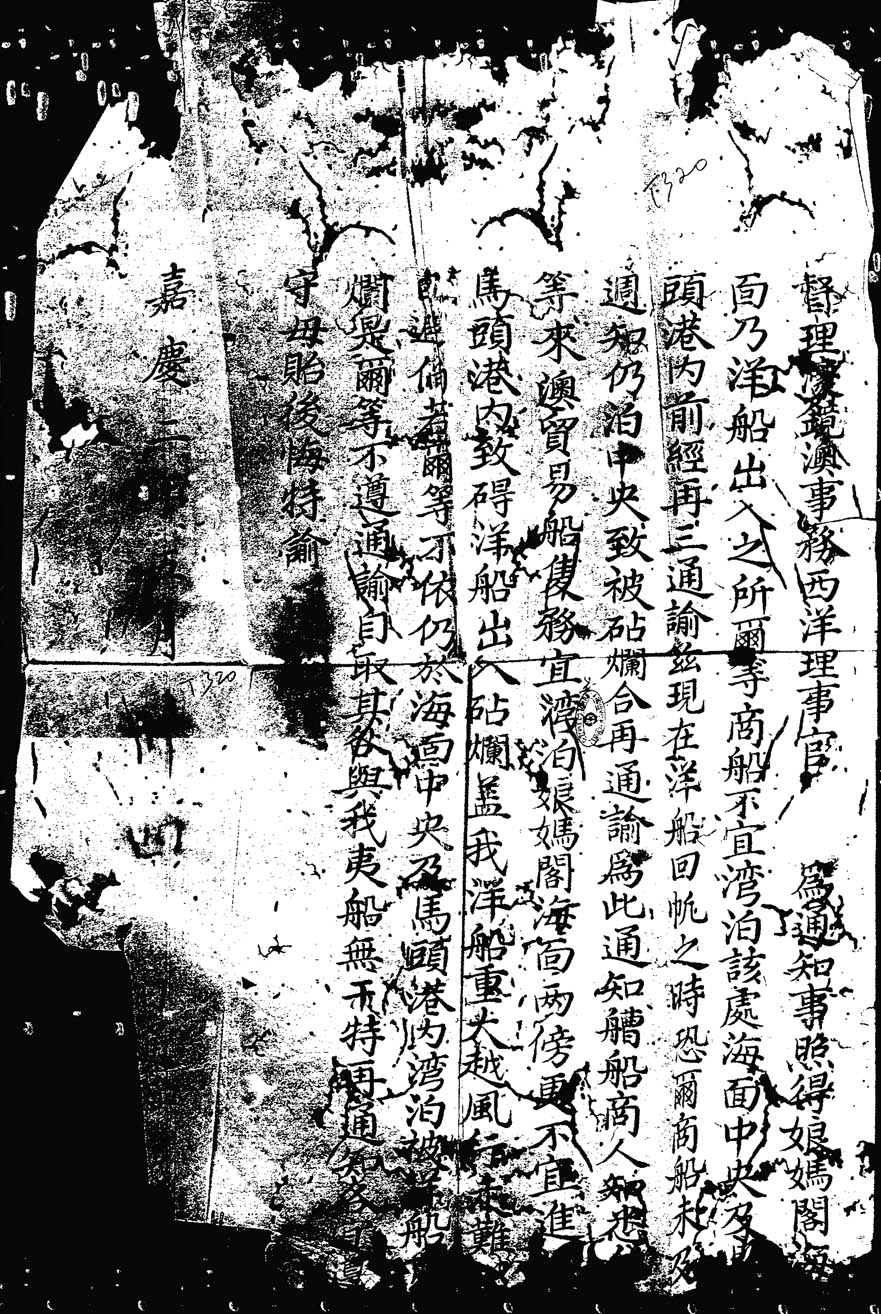 督理濠鏡澳事務西洋理事官 為通知事照得娘媽閣海
面乃洋船出入之所爾等商船不宜湾泊該處海面中央及馬
頭港內前經再三通諭兹現在洋船回帆之時恐爾商船未及
週知仍泊中央致被砧爛合再通諭為此通知艚船商人知悉
等來澳貿易船隻務宜湾泊娘媽閣海面兩傍更不宜進
馬頭港內致碍洋船出入砧爛盖我洋船重大越風行走難
避倘若爾等不依仍於海面中央及馬頭港內湾泊被洋船
爛是爾等不遵通諭自取其咎與我夷船無干特再通知各宜遵
守毋貽後悔特諭
嘉慶二年 月
T320
T320